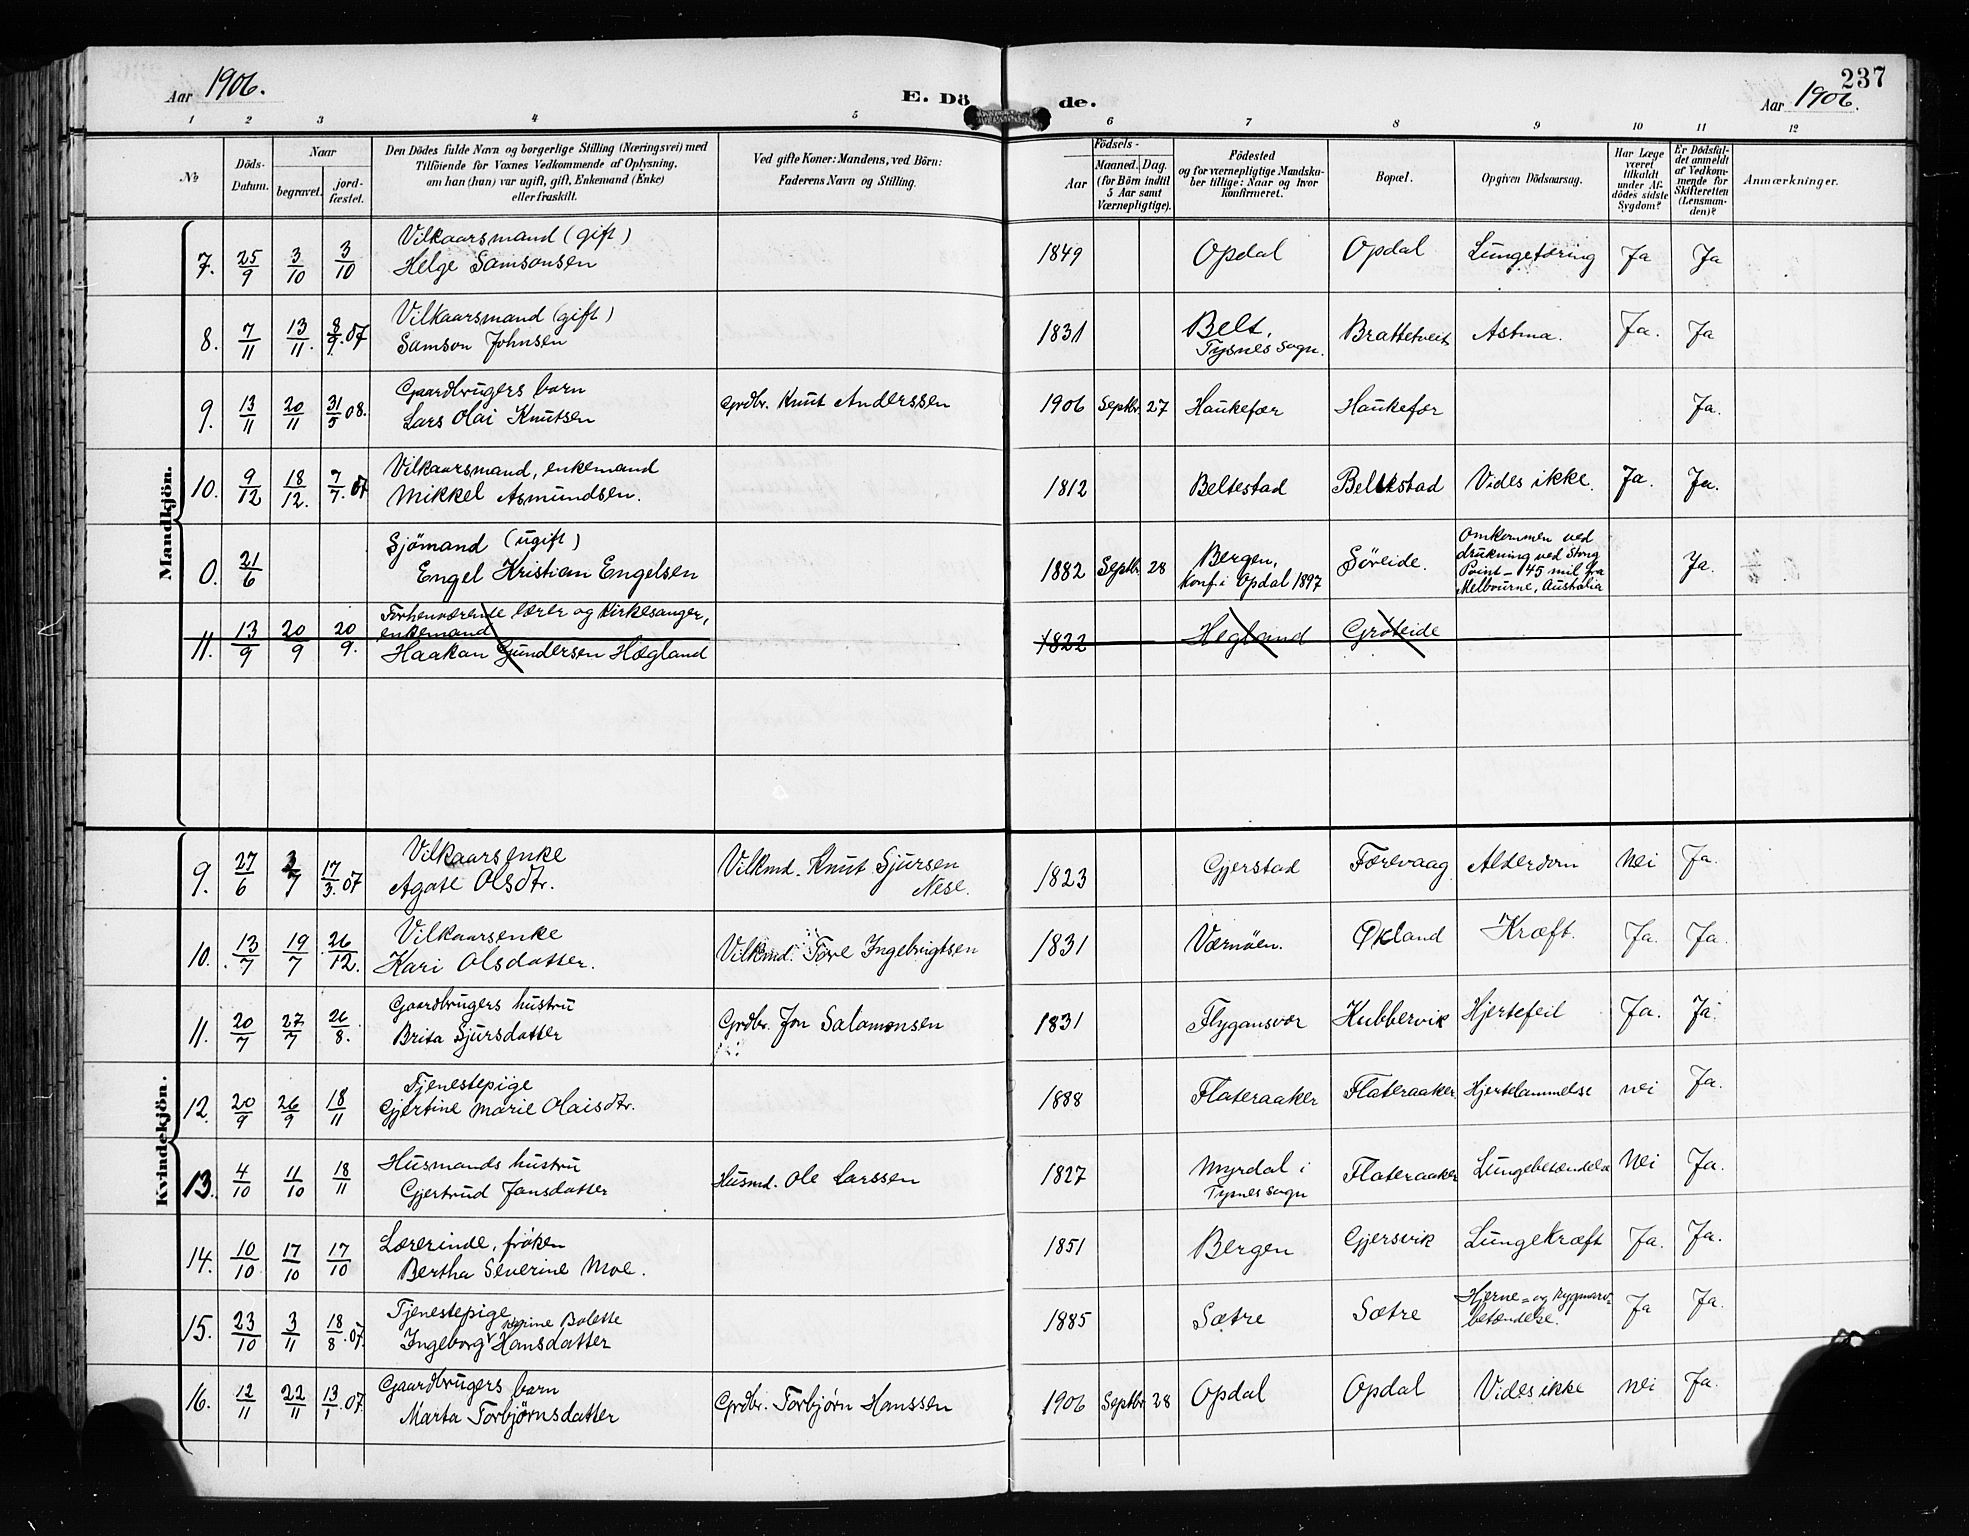 Aar 1906.
E. Döde.
237
Aar 1906.
1 2 3 4 5 6 7 8 9 10 11 12
No
Döds-Datum.
Naar
begravet.
jord-fæstet.
Den Dödes fulde Navn og borgerlige Stilling (Næringsvei) med
Tilföiende for Voxnes Vedkommende af Oplysning,
om han (hun) var ugift, gift, Enkemand (Enke)
eller fraskilt.
Ved gifte Koner: Mandens, ved Börn:
Faderens Navn og Stilling.
Födsels-
Aar
Maaned. Dag.
(for Börn indtil
5 Aar samt
Værnepligtige).
Födested
og for værnepligtige Mandska-
ber tillige: Naar og hvor
konfirmeret.
Bopæl.
Opgiven Dödsaarsag.
Har Læge
været
tilkaldt
under Af-
dödes sidste
Sygdom?
Er Dödsfal-
det anmeldt
af Vedkom-
mende for
Skifteretten
(Lensman-
den)?
Anmærkninger.
Mandkjön.
7. 25/9 3/10 3/10 Vilkaarsmand (gift)
Helge Samsonsen 1849 Opdal Opdal Lungetæring Ja Ja
8. 7/11 13/11. 8/9. 07 Vilkaarsmand (gift)
Samson Johnsen 1831 Belt, Tysnes sogn. Brattetveit Astma. Ja. Ja
9. 13/11 20/11 31/5 08. Gaardbrugers barn
Lars Olai Knutsen Grdbr. Knut Anderssen 1906 Septbr. 27 Haukefær Haukefær Ja.
10. 9/12 18/12. 7/7. 07 Vilkaarsmand, enkemand
Mikkel Asmundsen. 1812 Beltestad Beltestad Vides ikke. Ja. Ja.
0. 21/6 Sjömand (ugift)
Engel Kristian Engelsen 1882 Septbr. 28 Bergen, Konf. i Opdal 1897 Söreide. Omkommen ved
drukning ved Stong
Point - 145 mil fra
Melbourne, Australia Ja.
11. 13/9 20/9 20/9. Forhenværende lærer og kirkesanger,
enkemand
Haakan Gundersen Hægland 1822 Hegland Gröteide
Kvindekjön.
9. 27/6 3/7 17/3. 07 Vilkaarsenke
Agate Olsdtr. Vilkmd. Knut Sjursen Nese. 1823 Gjerstad Færevaag Alderdom Nei Ja.
10. 13/7 19/7 26/12. Vilkaarsenke
Kari Olsdatter. Vilkmd. Tore Ingebrigtsen 1831 Værnöen. Økland Kræft. Ja. Ja.
11. 20/7 27/7 26/8. Gaardbrugers hustru
Brita Sjursdatter Grdbr. Jon Salamonsen 1831 Flygansvær Kubbervik Hjertefeil Ja. Ja.
12. 20/9 26/9 18/11 Tjenestepige
Gjertine Marie Olaisdtr. 1888 Flateraaker Flateraaker Hjertelammelse nei Ja.
13. 4/10 11/10 18/11 Husmands hustru
Gjertrud Jansdatter Husmd. Ole Larssen 1827 Myrdal i Tysnes sogn Flateraaker Lungebetændelse Nei Ja.
14. 10/10 17/10 17/10 Lærerinde, fröken
Bertha Severine Moe. 1851 Bergen Gjersvik Lungekræft Ja. Ja.
15. 23/10 3/11 18/8. 07. Tjenestepige
Bolette
Ingeborg Hansdatter 1885 Sætre Sætre Hjerne- og rygmarvs-
betændelse. Ja Ja.
16. 12/11 22/11 13/1. 07. Gaardbrugers barn
Marta Torbjørnsdatter Grdbr. Torbjørn Hanssen 1906 Septbr. 28 Opdal Opdal Vides ikke nei Ja.